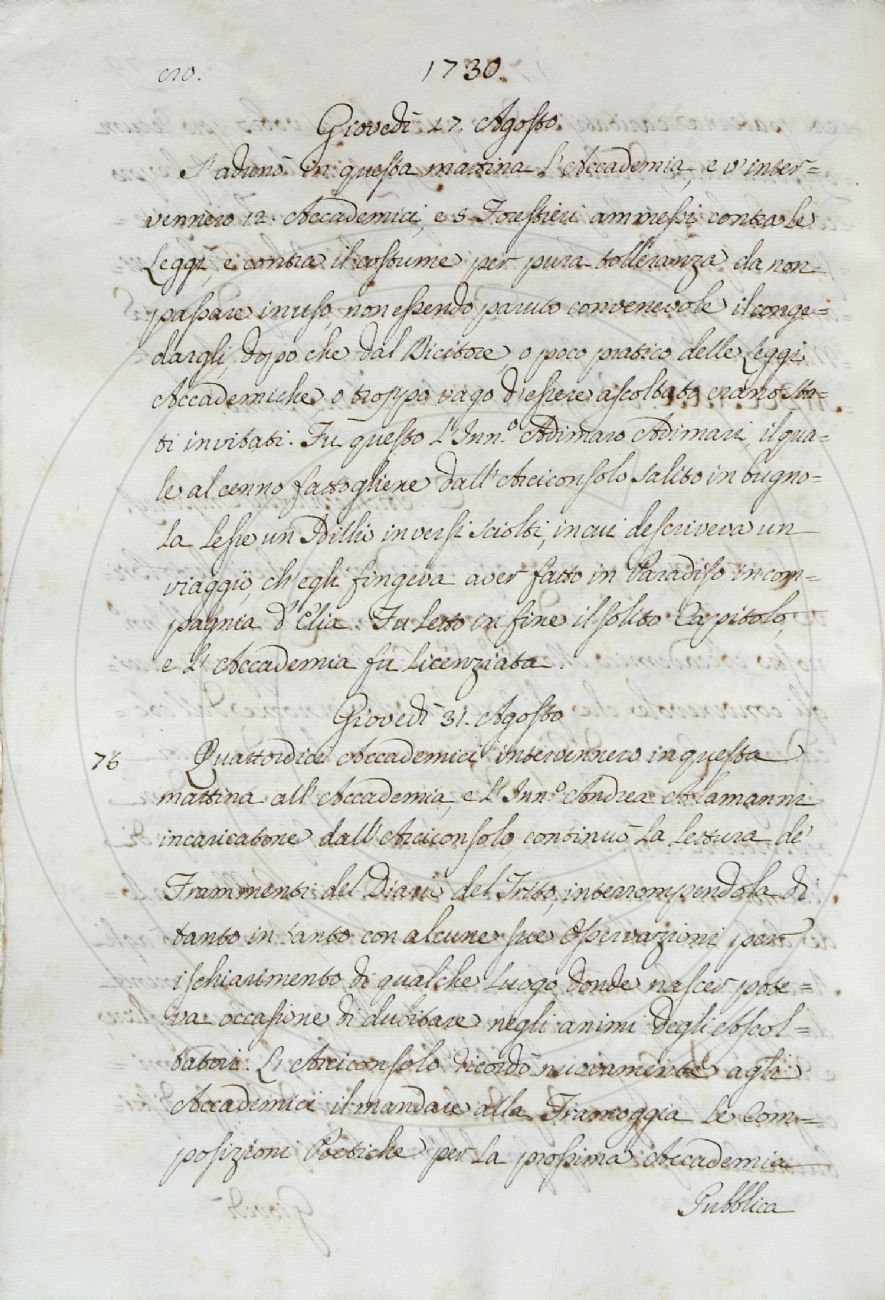 1730.
Giovedì 17. Agosto.
S'adunò in questa mattina l'Accademia, e v'inter=
vennero 12. Accademici, e 5. Forestieri ammessi contra le
Leggi, e contra il costume per pura tolleranza da non
passare in uso, non essendo paruto convenevole il conge=
dargli, dopo che dal Dicitore, o poco pratico delle Leggi
Accademiche, o troppo vago d'essere ascoltato, erano sta=
ti invitati. Fu questo l'Inn.º Adimaro Adimari, il qua=
le al cenno fattogliene dall'Arciconsolo salito in bugno=
la lesse un Idillio in versi sciolti, in cui descriveva un
viaggio, ch'egli fingeva aver fatto in Paradiso in com=
pagnia d'Elia. Fu letto in fine il solito Capitolo,
e l'Accademia fu licenziata.
Giovedì 31. Agosto
76 Quattordici Accademici intervennero in questa
mattina all'Accademia, e l'Inn.º Andrea Alamanni
incaricatone dall'Arciconsolo continuò la lettura de'
Frammenti del Diario del Trito, interrompendola di
tanto in tanto con alcune sue Osservazioni per
ischiarimento di qualche luogo, donde nascer pote=
va occasione di dubitare negli animi degli Ascol=
tatori. L'Arciconsolo ricordò nuovamente agli
Accademici il mandare alla Tramoggia le Com=
posizioni Poetiche per la prossima Accademia
Pubblica